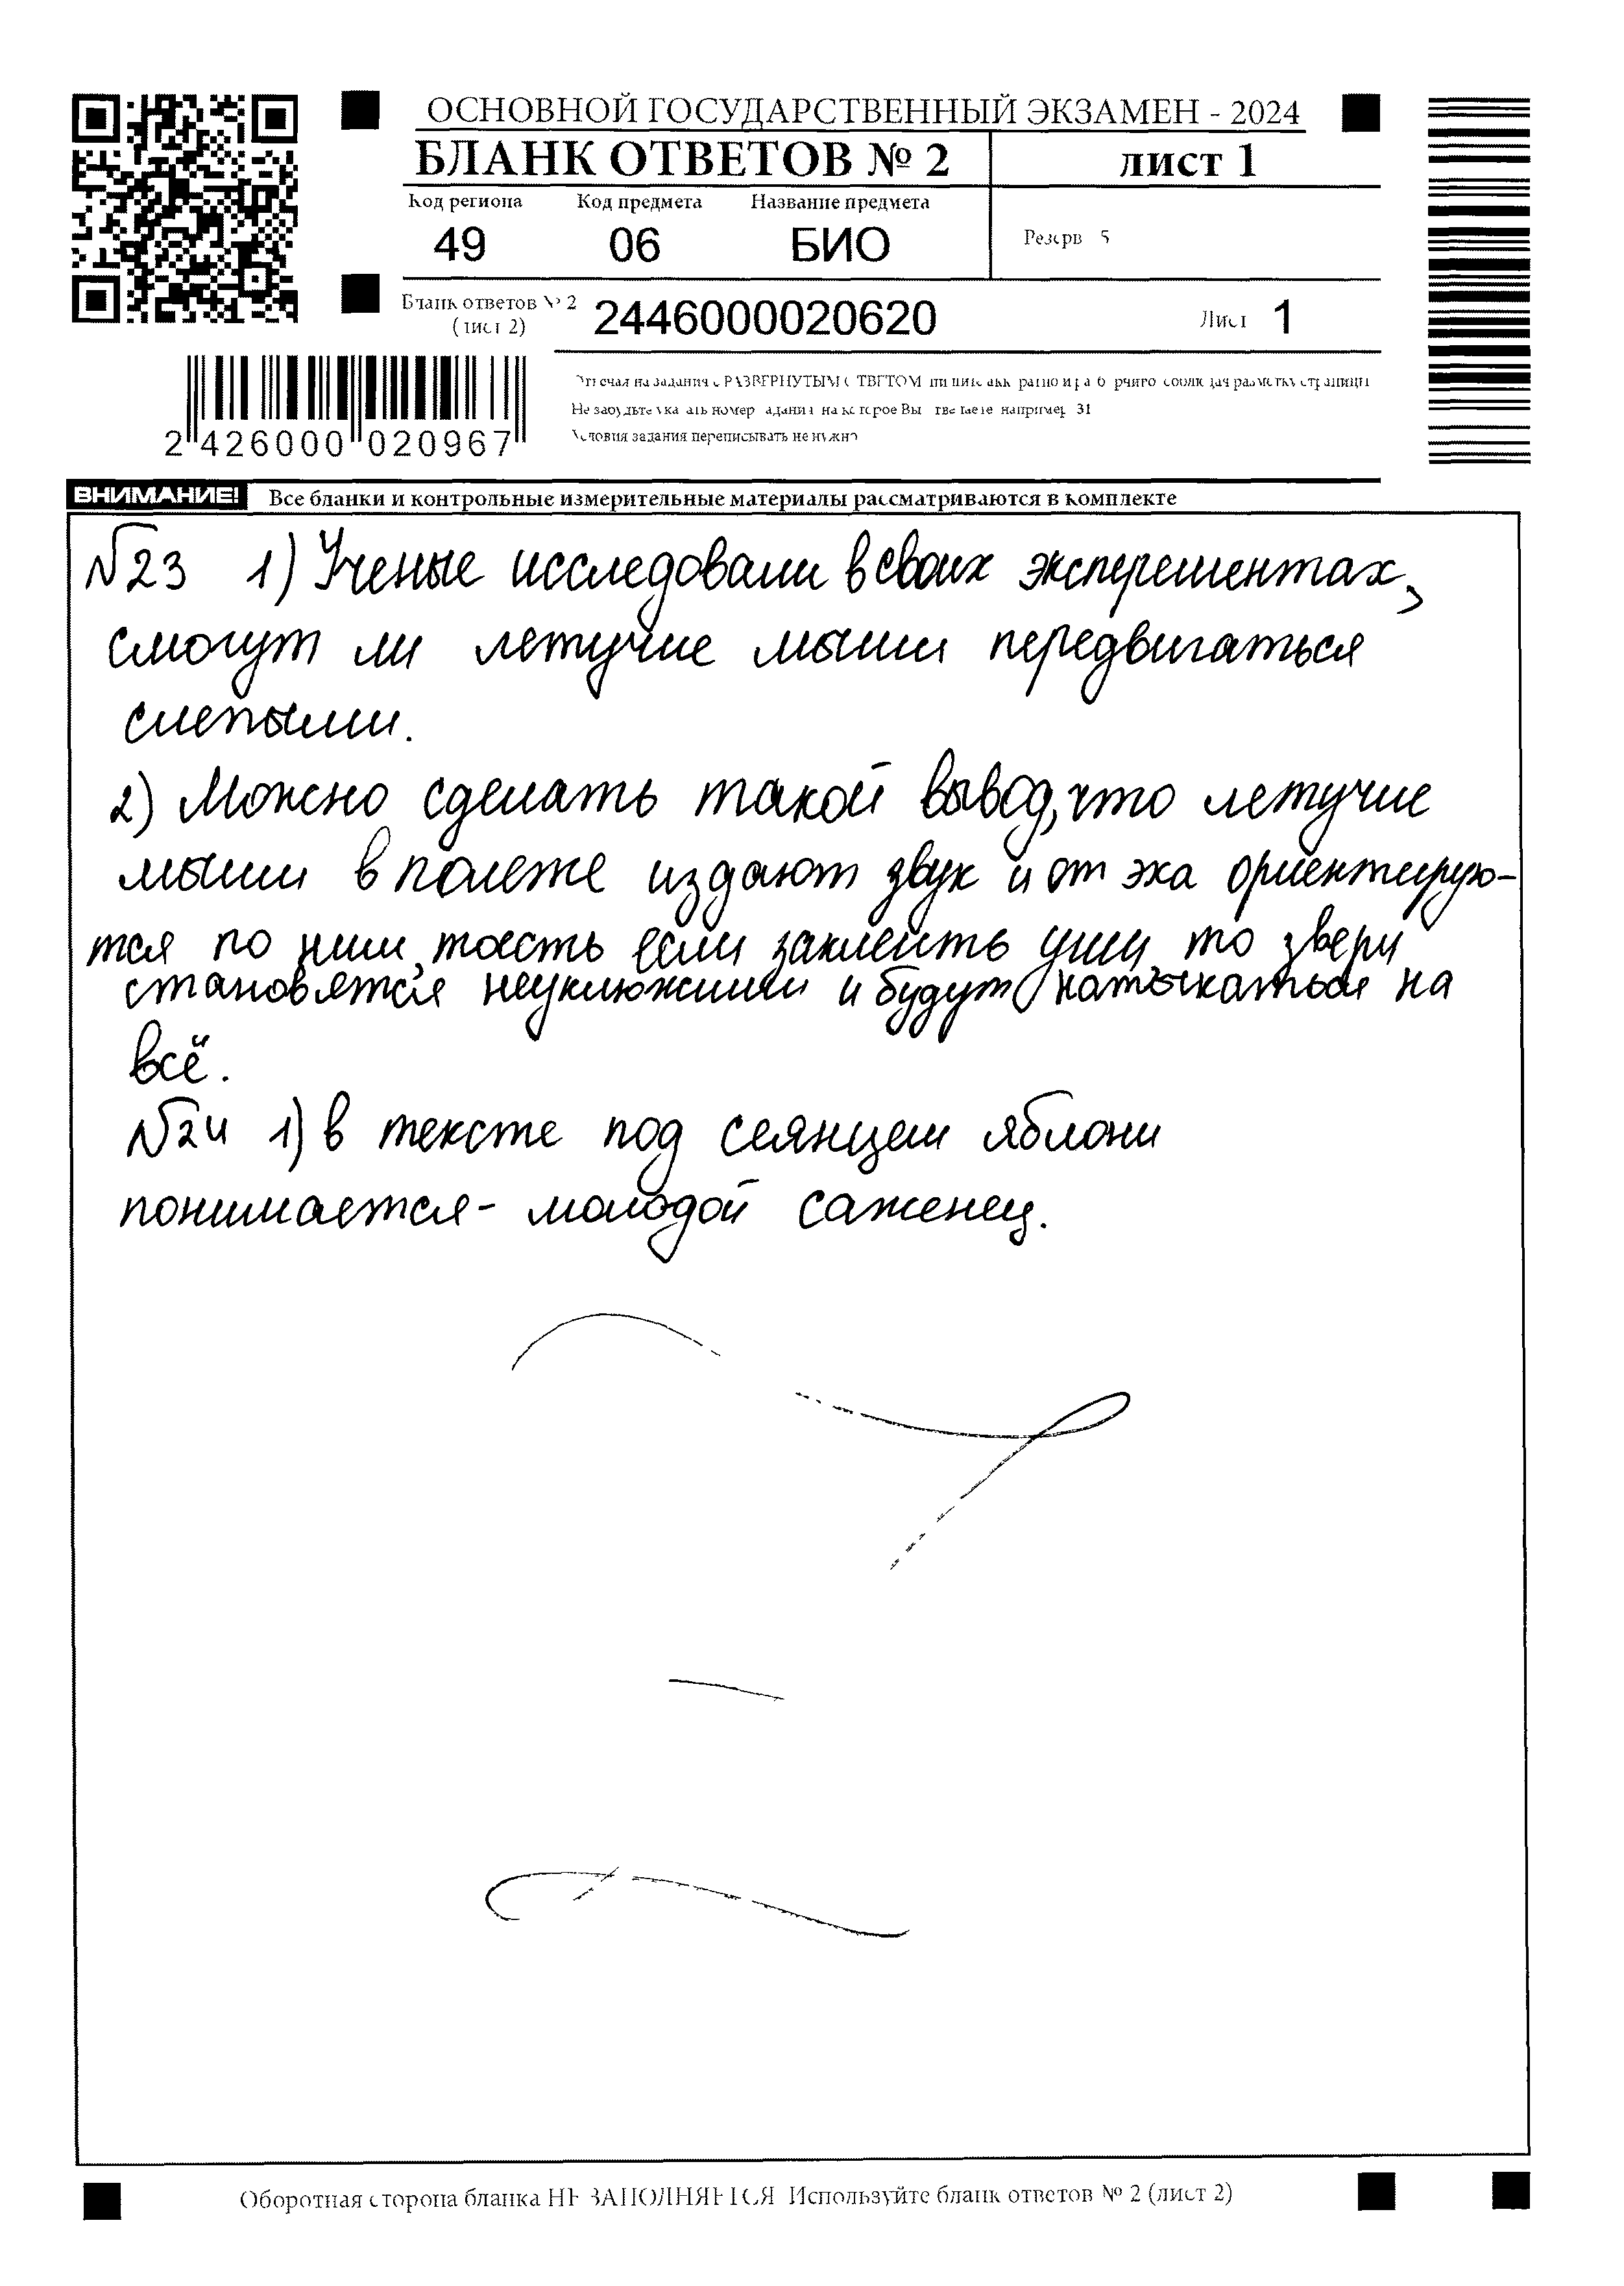 ОСНОВНОЙ ГОСУДАРСТВЕННЫЙ ЭКЗАМЕН - 2024
БЛАНК ОТВЕТОВ № 2
лист 1
Код региона Код предмета Название предмета
49 06 БИО
Резерв 5
Бланк ответов № 2
(лист 2)
2446000020620
Лист 1
2 426000 020967
Не забудьте указать номер задания на которое Вы отвечаете например 31
Условия задания переписывать не нужно
ВНИМАНИЕ! Все бланки и контрольные измерительные материалы рассматриваются в комплекте
№23 1) Ученые исследовали в своих эксперементах,
смогут ли летучие мыши передвигаться
слепыми.
2) Можно сделать такой вывод, что летучие
мыши в полете издают звук и от эха ориентирую-
тся по ним, тоесть если заклеить уши, то звери
становятся неуклюжими и будут натыкаться на
всё.
№24 1) в тексте под сеянцем яблони
понимается- молодой саженец.
Оборотная сторона бланка НЕ ЗАПОЛНЯЕТСЯ Используйте бланк ответов № 2 (лист 2)